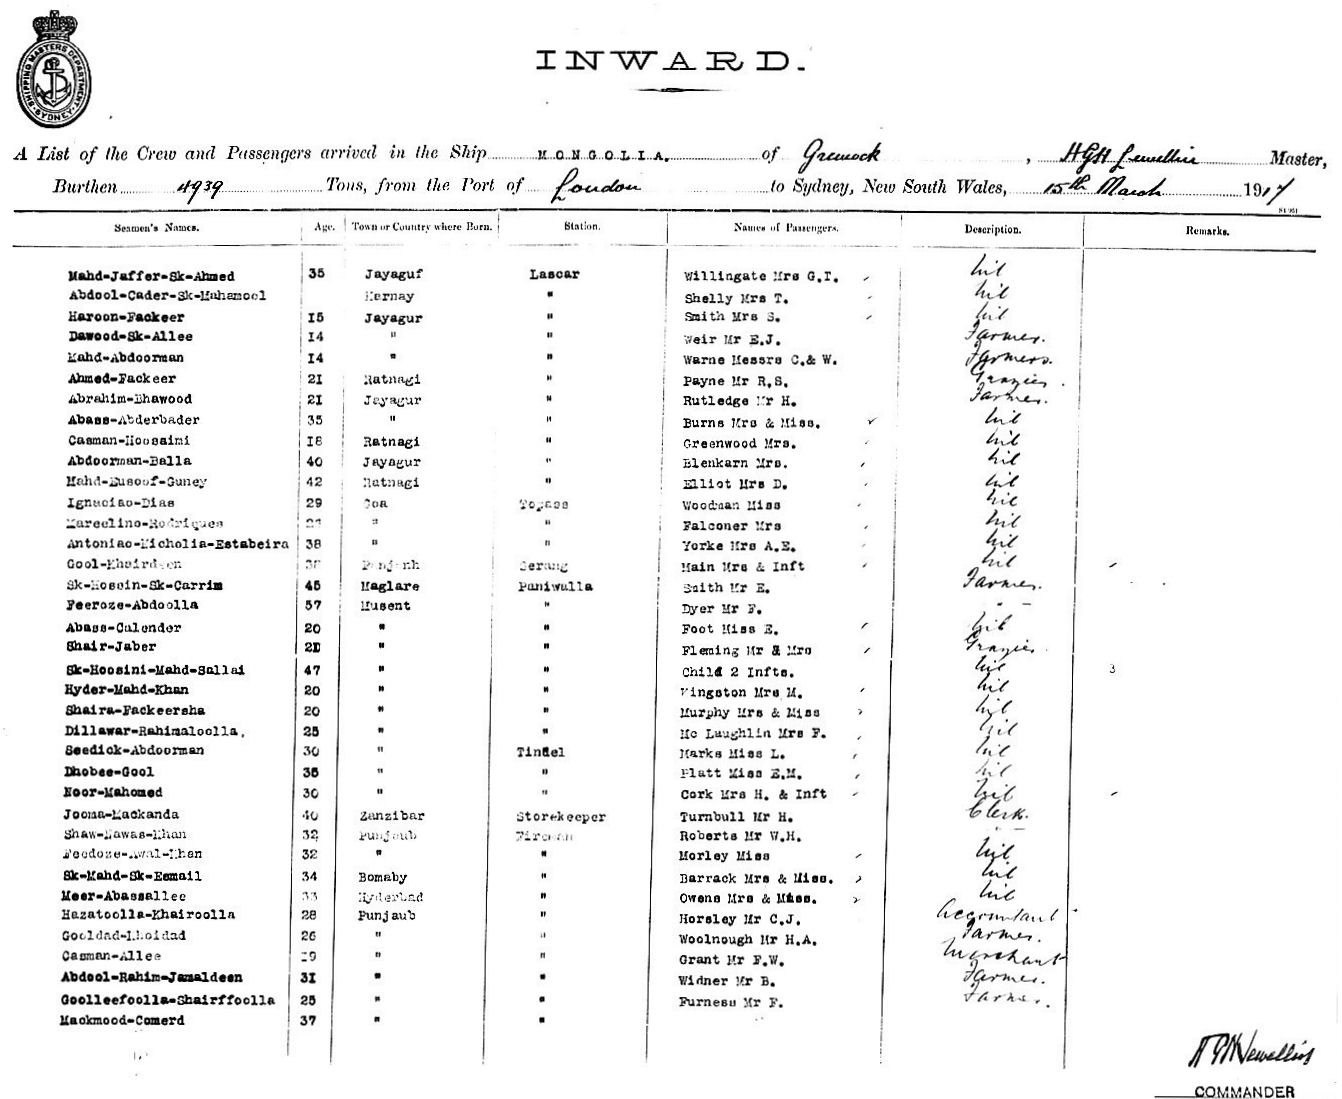 SHIPPING MASTERS DEPARTMENT
SYDNEY
INWARD.
A List of the Crew and Passengers arrived in the Ship MONGOLIA. of Greenock, HGH Lewellin Master,
Burthen 4939 Tons, from the Port of London to Sydney, New South Wales, 15th March 1917
Seamen's Names. Age. Town or Country where Born. Station. Names of Passengers. Description. Remarks.
Mahd-Jaffer-Sk-Ahmed 35 Jayaguf Lascar Willingate Mrs G.T. Nil
Abdool-Cader-Sk-Mahamool Kernay " Shelly Mrs T. Nil
Haroon-Fackeer 15 Jayagur " Smith Mrs S. Nil
Dawood-Sk-Allee 14 " " Weir Mr E.J. Farmer.
Mahd-Abdoorman 14 " " Warne Messrs C.& W. Farmers.
Ahmed-Fackeer 21 Ratnagi " Payne Mr R.S. Grazier.
Abrahim-Bhawood 21 Jayagur " Rutledge Mr H. Farmer.
Abass-Abderbader 35 " " Burns Mrs & Miss. Nil
Casman-Hoosaini 18 Ratnagi " Greenwood Mrs. Nil
Abdoorman-Balla 40 Jayagur " Blenkarn Mrs. Nil
Mahd-Eusoof-Guney 42 Ratnagi " Elliot Mrs D. Nil
Ignaciao-Dias 29 Goa Topass Woodman Miss Nil
Marcelino-Rodriques " " Falconer Mrs Nil
Antoniao-Nicholia-Estabeira 38 " " Yorke Mrs A.E. Nil
Gool-Khairdeen Punjaub Serang Main Mrs & Inft Nil
Sk-Hossin-Sk-Carrim 45 Maglare Paniwulla Smith Mr E. Farmer.
Feeroze-Abdoolla 57 Musent " Dyer Mr F. " -
Abass-Calender 20 " " Foot Miss E. Nil
Shair-Jaber 21 " " Fleming Mr & Mrs Grazier.
Sk-Hoosini-Mahd-Sallai 47 " " Child 2 Infts. Nil 3
Hyder-Mahd-Khan 20 " " Kingston Mrs M. Nil
Shaira-Fackeersha 20 " " Murphy Mrs & Miss Nil
Dillawar-Rahimaloolla, 25 " " Mc Laughlin Mrs F. Nil
Seedick-Abdoorman 30 " Tindel Marks Miss L. Nil
Dhobee-Gool 35 " " Platt Miss E.M. Nil
Noor-Mahomed 30 " " Cork Mrs H. & Inft Nil
Jooma-Mackanda 40 Zanzibar Storekeeper Turnbull Mr H. Clerk.
Shaw-Nawas-Khan 32 Punjaub Fireman Roberts Mr W.H. " -
Feedoze-Awal-Khan 32 " " Morley Miss Nil
Sk-Mahd-Sk-Esmail 34 Bomaby " Barrack Mrs & Miss. Nil
Meer-Abassallee 33 Hyderbad " Owens Mrs & Miss. Nil
Hazatoolla-Khairoolla 28 Punjaub " Horsley Mr C.J. Accountant
Gooldad-Khoidad 26 " " Woolnough Mr H.A. Farmer.
Casman-Allee 29 " " Grant Mr F.W. Merchant
Abdool-Rahim-Jamaldeen 31 " " Widner Mr B. Farmer.
Goolleefoolla-Shairffoolla 25 " " Furness Mr F. Farmer.
Mackmood-Comerd 37 " "
HGH Lewellin
COMMANDER